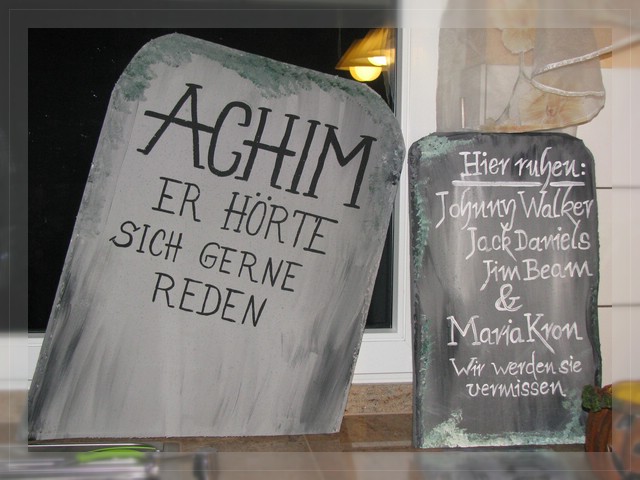 ACHIM
ER HÖRTE
SICH GERNE
REDEN
Hier ruhen:
Johnny Walker
Jack Daniels
Jim Beam
&
Maria Kron
Wir werden sie
vermissen